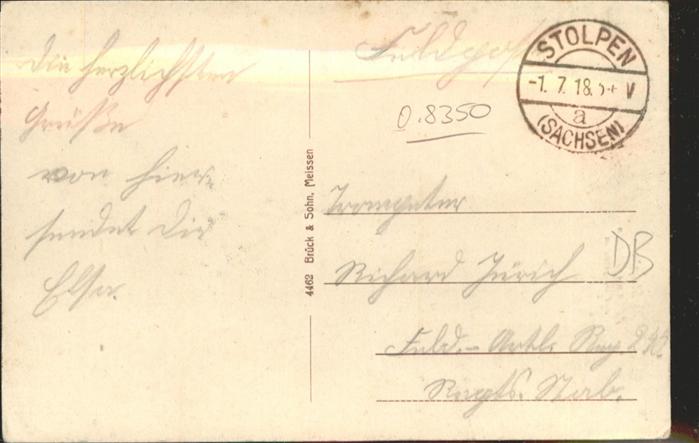 Die herzlichsten
Grüße
von hier
sendet Dir
Elsa.
4462 Brück & Sohn, Meissen
Feldpost
STOLPEN
-1. 7. 18. 5-6 V
a
(SACHSEN)
0.8350
Trompeter
Richard Jürich
DB
Feld.-Artl. Reg
Regts. Stab.